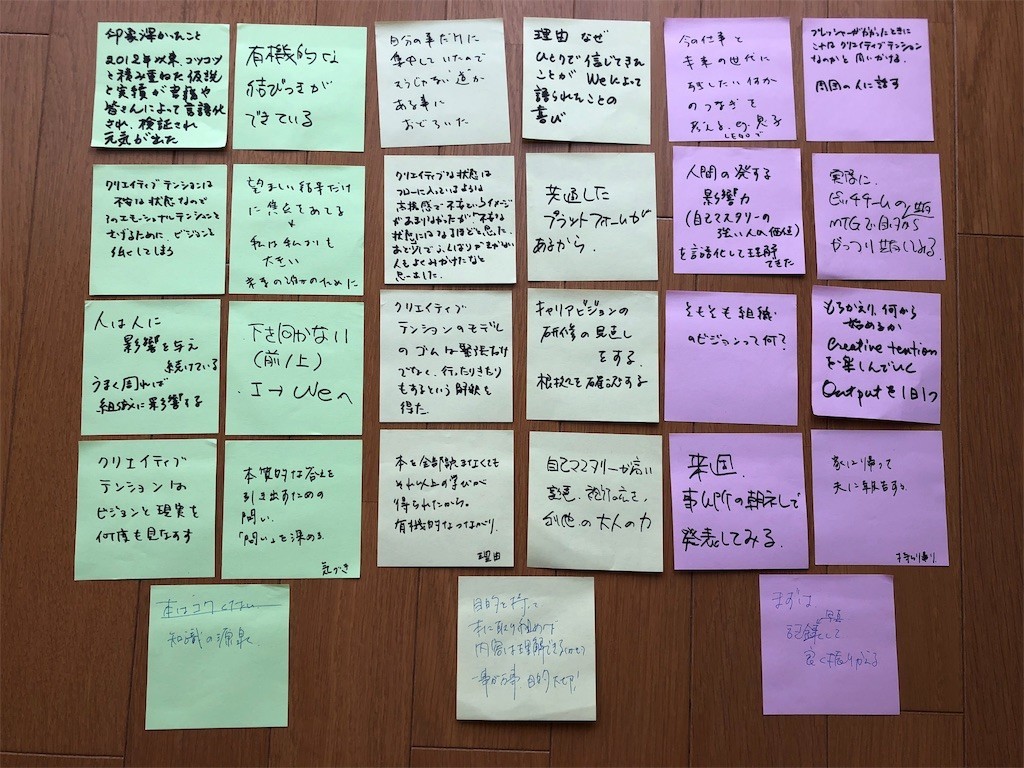 印象深かったこと
2012年以来、コツコツ
と積み重ねた仮説
と実績が書籍や
皆さんによって言語化
され、検証され
元気が出た
有機的な
結びつきが
できている
自分の事だけに
集中していたので
そうじゃない道が
ある事に
おどろいた
理由 なぜ
ひとりで信じてきた
ことが Weによって
語られたことの
喜び
今の仕事と
未来の世代に
のこしたい何か
のつなぎを
考える。eg. 息子
LEGOで
プレッシャーがかかったときに
これは クリエイティブテンション
なのかと 問いかける。
周囲の人に話す
クリエイティブ テンションは
不安な状態なので
エモーショナルテンションを
さげるために、ビジョンを
低くしてしまう
望ましい結果だけ
に焦点をあてる
私は私づも
大きい
未来の誰かのために
クリエイティブな状態は
フローに入っているような
高揚感で不安というイメージ
があまりなかったが「不安な
状態」にはなるほどと思った。
人もよくみかけたなと
思いました。
共通した
プラットフォームが
あるから。
人間の発する
影響力
(自己マスタリーの
強い人の価値)
を言語化して理解
できた
実際に、
ピッチゲームの
MTGで自分から
やってみる。
人は人に
影響を与え
続けている
うまく周れば
組織に影響する
下を向かない
(前/上)
I→Weへ
クリエイティブ
テンションのモデル
のゴムは緊張だけ
でなく、行ったりきたり
もするという解釈を
得た。
キャリアビジョンの
研修の見直し
をする。
根拠を確認する
そもそも組織
のビジョンって何?
もちかえり、何から
始めるか
Creative tention
を楽しんでいく
Outputを1日1つ
クリエイティブ
テンションは
ビジョンと現実を
何度も見なおす
本質的な答えを
引き出すための
問い.
「問い」を深める.
気づき
本を全部読まなくても
それ以上の学びが
得られたから。
有機的なつながり.
理由
自己マスタリーが高い
利他の大人の力
来週.
事ム所の朝礼で
発表してみる.
家に帰って
夫に報告する.
お持ち帰り
本はコワくない
知識の源泉
目的を持って
本に取り組めば
内容は理解できる(かも)
一事が万事. 目的大切!
まずは
写真
記録して
良く振りかえる